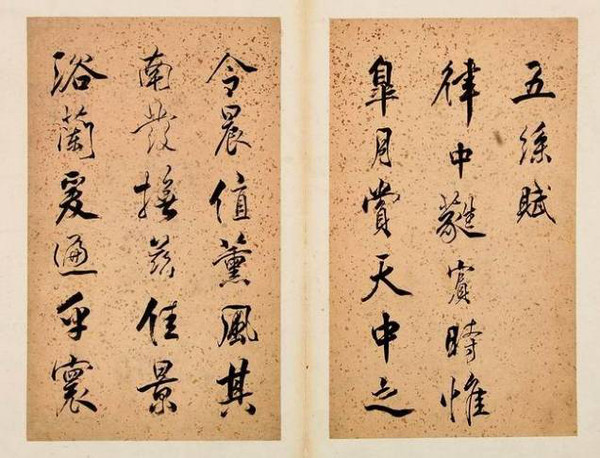 五絲賦
律中蕤賓時惟
皐月賞天中之
令晨值薰風其
南發撫茲佳景
浴蘭爰遍乎寰